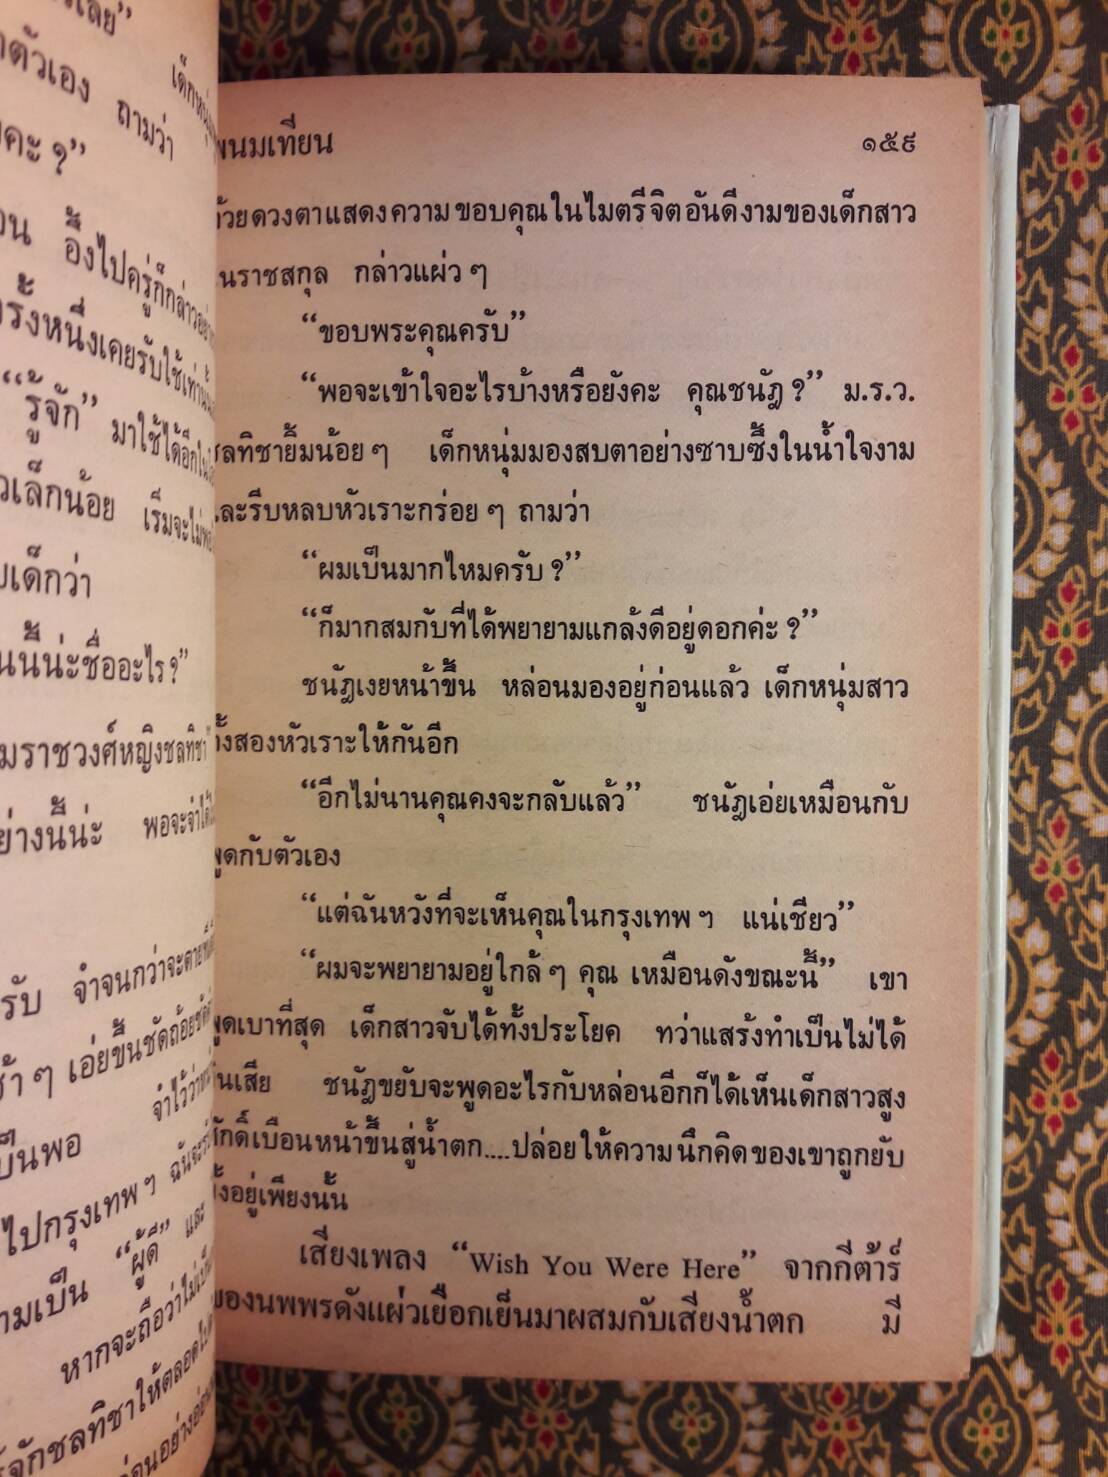 รเลย”
ตัวเอง ถามว่า
คะ ?”
อึ้งไปครู่ก็กล่าว
รั้งหนึ่งเคยรับใช้เท่านั้น
“รู้จัก” มาใช้ได้อีก
เล็กน้อย เริ่มจะไม่พอ
เด็กว่า
นนี้น่ะชื่ออะไร ?”
มราชวงศ์หญิงชลทิชา
ย่างนี้น่ะ พอจะจำได้
รับ จำจนกว่าจะตาย
ช้า ๆ เอ่ยขึ้นชัดถ้อยชัด
จำไว้ว่า
ป็นพอ
ไปกรุงเทพ ฯ ฉันจะ
ามเป็น “ผู้ดี” และ
หากจะถือว่าไม่เป็น
รู้จักชลทิชาให้ตลอดไป
พนมเทียน ๑๕๙
ด้วยดวงตาแสดงความขอบคุณในไมตรีจิตอันดีงามของเด็กสาว
ในราชสกุล กล่าวแผ่ว ๆ
“ขอบพระคุณครับ”
“พอจะเข้าใจอะไรบ้างหรือยังคะ คุณชนัฎ ?” ม.ร.ว.
ชลทิชายิ้มน้อย ๆ เด็กหนุ่มมองสบตาอย่างซาบซึ้งในน้ำใจงาม
และรีบหลบหัวเราะกร่อย ๆ ถามว่า
“ผมเป็นมากไหมครับ ?”
“ก็มากสมกับที่ได้พยายามแกล้งดีอยู่ดอกค่ะ ?”
ชนัฎเงยหน้าขึ้น หล่อนมองอยู่ก่อนแล้ว เด็กหนุ่มสาว
ทั้งสองหัวเราะให้กันอีก
“อีกไม่นานคุณคงจะกลับแล้ว” ชนัฎเอ่ยเหมือนกับ
พูดกับตัวเอง
“แต่ฉันหวังที่จะเห็นคุณในกรุงเทพ ฯ แน่เชียว”
“ผมจะพยายามอยู่ใกล้ ๆ คุณ เหมือนดังขณะนี้” เขา
พูดเบาที่สุด เด็กสาวจับได้ทั้งประโยค ทว่าแสร้งทำเป็นไม่ได้
ยินเสีย ชนัฎขยับจะพูดอะไรกับหล่อนอีกก็ได้เห็นเด็กสาวสูง
ศักดิ์เบือนหน้าขึ้นสู่น้ำตก....ปล่อยให้ความนึกคิดของเขาถูกยับ
ยั้งอยู่เพียงนั้น
เสียงเพลง “Wish You Were Here” จากกีต้าร์
ของนพพรดังแผ่วเยือกเย็นมาผสมกับเสียงน้ำตก มี